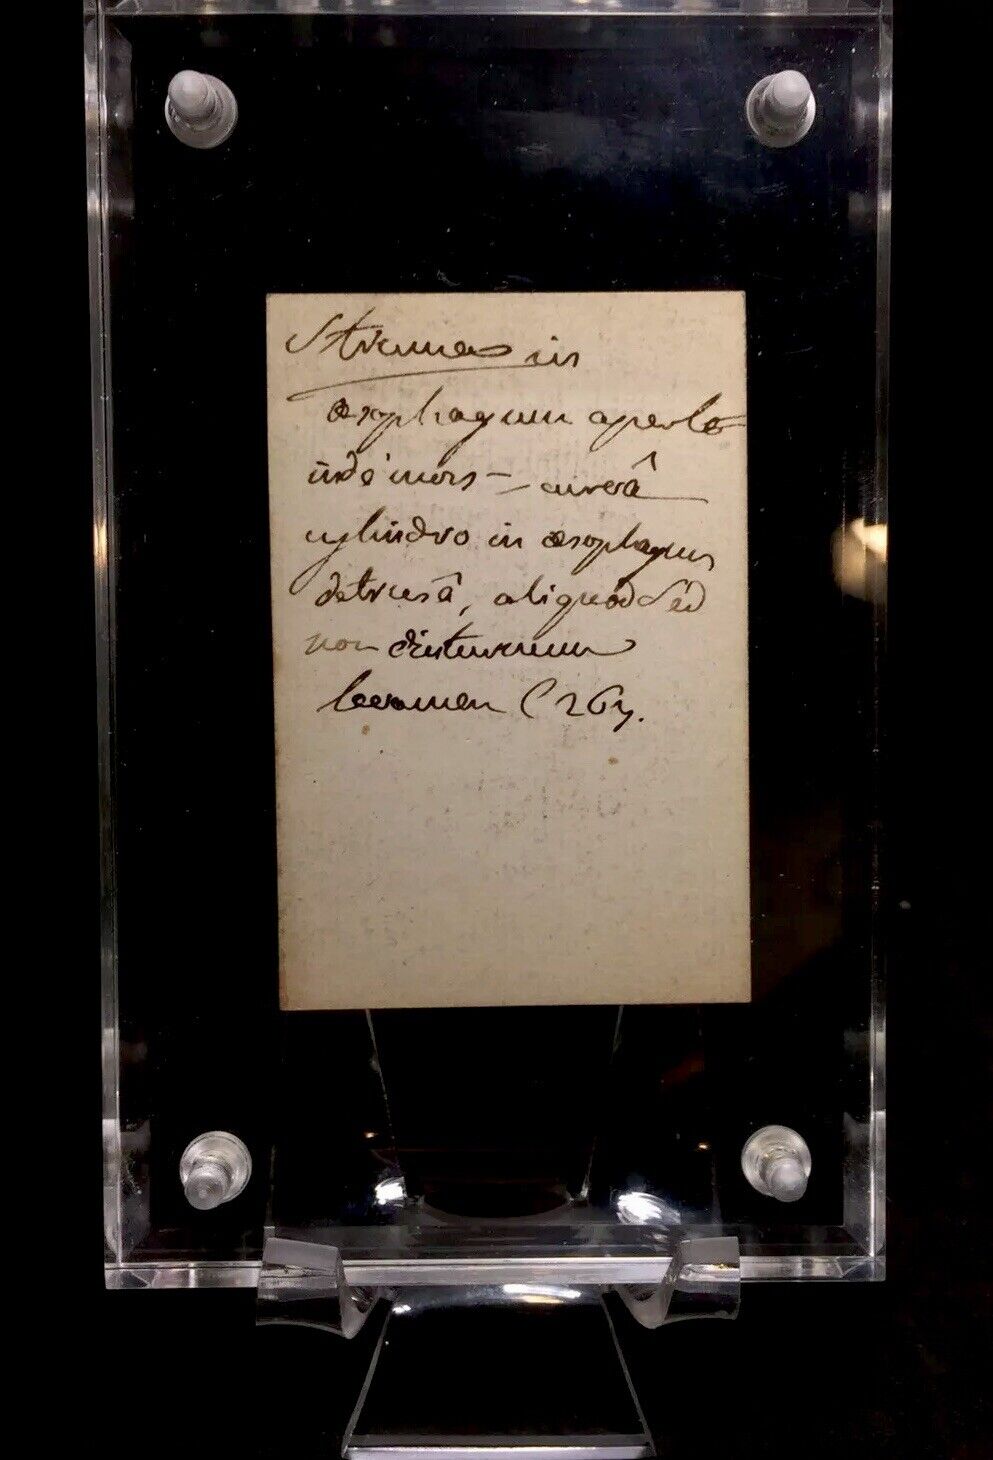 Strumas in
œsophagum aperto
indè mors — cuverâ
cylindro in œsophagum
detrusâ, aliquod sed
non diuturnum
levamen C 267.